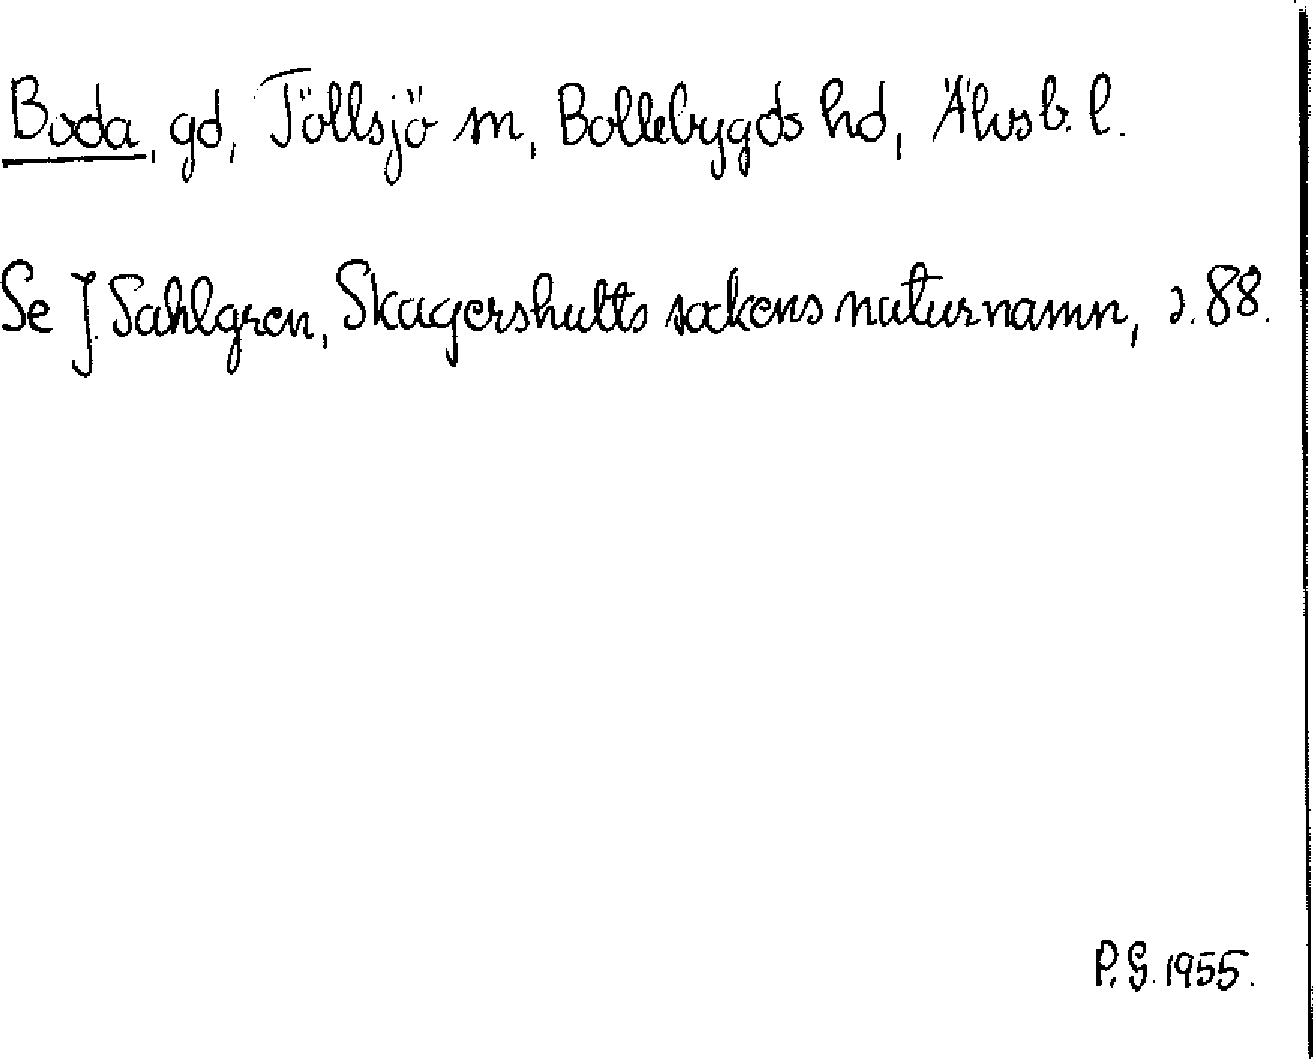 Boda, gd, Töllsjö sn, Bollebygds hd, Älvsb. l.
Se J. Sahlgren, Skagershults sockens naturnamn, s. 88.
P. G. 1955.